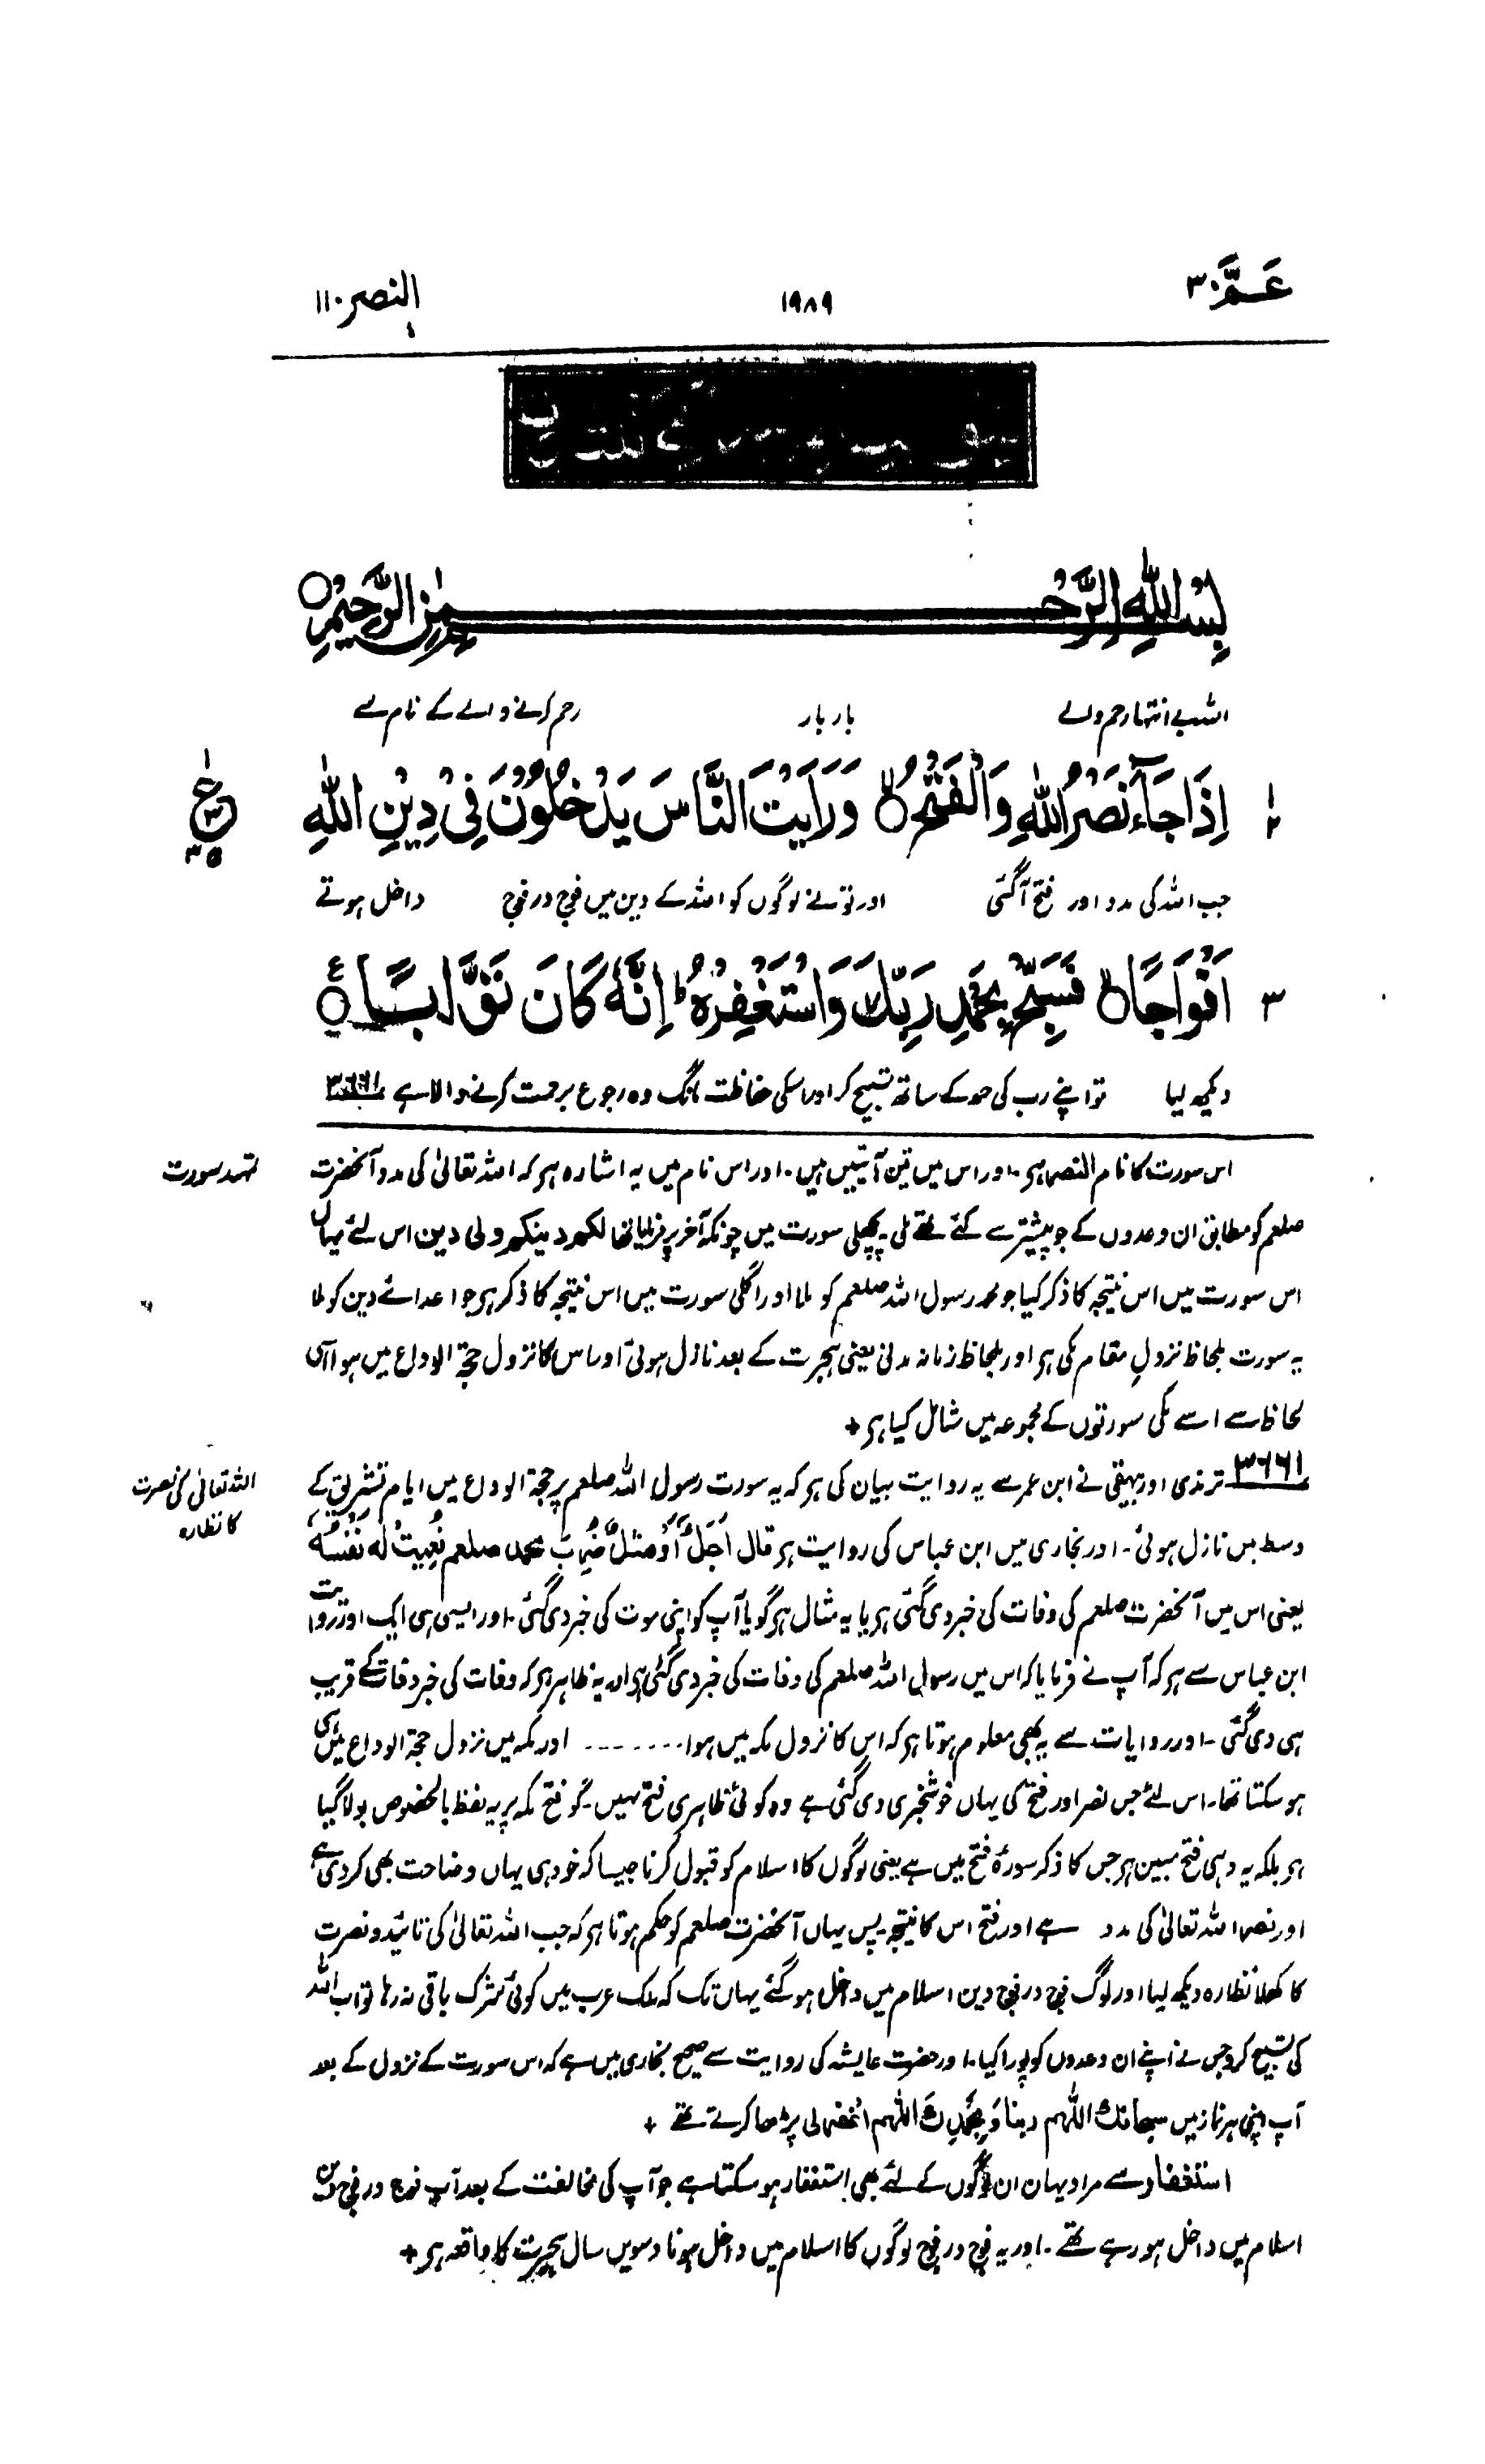 عَمَّ ۳۰
۱۹۸۹
النصر ۱۱۰
بِسْمِ اللّٰهِ الرَّحْمٰنِ الرَّحِيْمِ
اللہ بے انتہا رحم والے بار بار رحم کرنے والے کے نام سے
اِذَا جَآءَ نَصْرُ اللّٰهِ وَالْفَتْحُ ۙ وَرَاَيْتَ النَّاسَ يَدْخُلُوْنَ فِيْ دِيْنِ اللّٰهِ
جب اللہ کی مدد اور فتح آگئی اور تونے لوگوں کو اللہ کے دین میں فوج در فوج داخل ہوتے
۳ اَفْوَاجًا ۙ فَسَبِّحْ بِحَمْدِ رَبِّكَ وَاسْتَغْفِرْهُ ؕ اِنَّهٗ كَانَ تَوَّابًا
دیکھ لیا تو اپنے رب کی حمد کے ساتھ تسبیح کر اور اسکی حفاظت مانگ وہ رجوع برحمت کرنے والا ہے ۳۶۶۱
تمہید سورت
اس سورت کا نام النصر ہر ۔ اور اس میں تین آیتیں ہیں ۔ اور اس نام میں یہ اشارہ ہر کہ اللہ تعالیٰ کی مدد آنحضرت
صلعم کو مطابق ان وعدوں کے جو پیشتر سے کئے گئے تھے ملی ۔ پچھلی سورت میں چونکہ آخر پر فرمایا تھا لکم دینکم ولی دین اس لئے یہاں
اس سورت میں اس نتیجہ کا ذکر کیا جو محمد رسول اللہ صلعم کو ملا اور اگلی سورت میں اس نتیجہ کا ذکر ہر جو اعدائے دین کو ملا
یہ سورت بلحاظ نزول مقام مکی ہر اور بلحاظ زمانہ مدنی یعنی ہجرت کے بعد نازل ہوئی اور اس کا نزول حجۃ الوداع میں ہوا اسی
لحاظ سے اسے مکی سورتوں کے مجموعہ میں شامل کیا ہر +
اللہ تعالیٰ کی نصرت
کا نظارہ
۳۶۶۱ ترمذی اور بیہقی نے ابن عمر سے یہ روایت بیان کی ہر کہ یہ سورت رسول اللہ صلعم پر حجۃ الوداع میں ایام تشریق کے
وسط میں نازل ہوئی ۔ اور بخاری میں ابن عباس کی روایت ہر قال اَجَلٌ اَوْ مَثَلٌ ضُرِبَ لمحمد صلعم نُعِیَتْ لَهٗ نَفْسُهٗ
یعنی اس میں آنحضرت صلعم کی وفات کی خبر دی گئی ہر یا یہ مثال ہر گویا آپ کو اپنی موت کی خبر دی گئی ۔ اور ایسی ہی ایک اور روایت
ابن عباس سے ہر کہ آپ نے فرمایا کہ اس میں رسول اللہ صلعم کی وفات کی خبر دی گئی ہر اور یہ ظاہر ہر کہ وفات کی خبر وفات کے قریب
ہی دی گئی ۔ اور روایات سے یہ بھی معلوم ہوتا ہر کہ اس کا نزول مکہ میں ہوا ۔۔۔۔۔۔۔ اور مکہ میں نزول حجۃ الوداع میں ہی
ہو سکتا تھا ۔ اس لئے جس نصر اور فتح کی یہاں خوشخبری دی گئی ہے وہ کوئی ظاہری فتح نہیں ۔ گو فتح مکہ پر یہ لفظ بالخصوص بولا گیا
ہر بلکہ یہ وہی فتح مبین ہر جس کا ذکر سورۂ فتح میں ہے یعنی لوگوں کا اسلام کو قبول کرنا جیسا کہ خود ہی یہاں وضاحت بھی کردی ہے
اور نصر اللہ تعالیٰ کی مدد ہے اور فتح اس کا نتیجہ ۔ پس یہاں آنحضرت صلعم کو حکم ہوتا ہر کہ جب اللہ تعالیٰ کی تائید و نصرت
کا کھلا نظارہ دیکھ لیا اور لوگ فوج در فوج دین اسلام میں داخل ہو گئے یہاں تک کہ ملک عرب میں کوئی مشرک باقی نہ رہا تو اب اللہ
کی تسبیح کرو جس نے اپنے ان وعدوں کو پورا کیا ۔ اور حضرت عایشہ کی روایت سے صحیح بخاری میں ہے کہ اس سورت کے نزول کے بعد
آپ اپنی ہر نماز میں سبحانک اللّٰهم ربنا وَبِحَمْدِكَ اللّٰهم اغفر لی پڑھا کرتے تھے +
استغفار سے مراد یہاں ان لوگوں کے لئے بھی استغفار ہو سکتا ہے جو آپ کی مخالفت کے بعد آپ فوج در فوج دین
اسلام میں داخل ہو رہے تھے ۔ اور یہ فوج در فوج لوگوں کا اسلام میں داخل ہونا دسویں سال ہجرت کا واقعہ ہر +